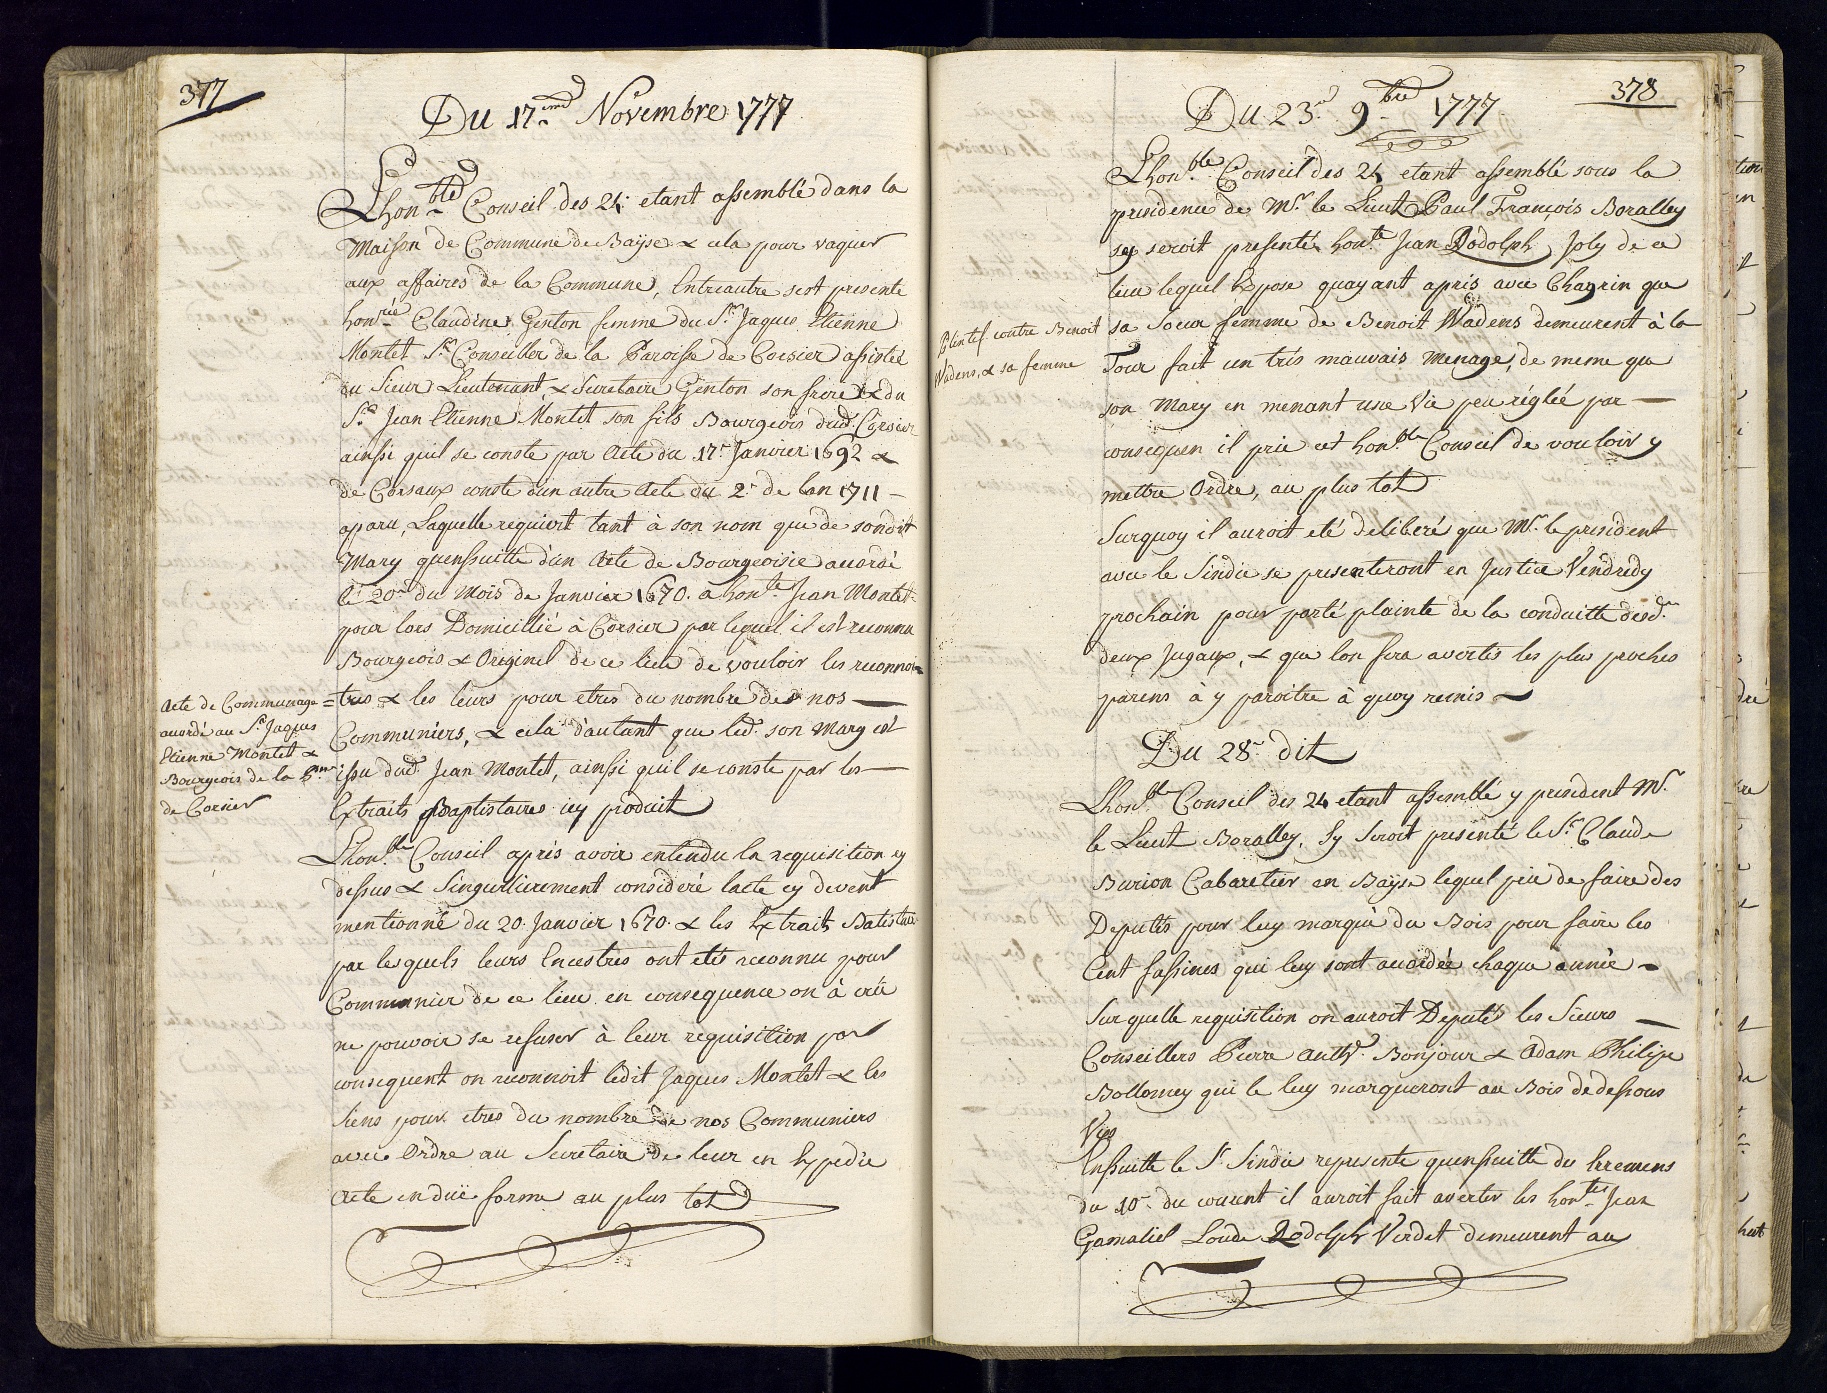 377
Du 17.eme Novembre 1777
Lhon.ble Conseil des 24. etant assemblé dans la
Maison de Commune de Baÿse & cela pour vaquer
aux affaires de la Commune, Entreautre sest presente
hon.rée Claudine Genton femme du S.r Jaques Etienne
Montet S.r Conseiller de la Paroisse de Corsier assistée
du Sieur Lieutenant, & Secretaire Genton son frere & du
S.r Jean Etienne Montet son fils Bourgeois dud.t Corsier
ainsi quil se conste par Acte du 17.e Janvier 1692 &
de Corsaux conste dun autre Acte du 2.e de lan 1711 –
aparu, Laquelle requiert tant à son nom que de sondit
Mary quensuitte d'un Acte de Bourgeoisie accordé
le 20.e du Mois de Janvier 1670. a hon.te Jean Montet
pour lors Domicillié à Corsier par lequel il est reconnu
Bourgeois & Originel de ce lieu de vouloir les reconnoi=
=tres & les leurs pour etres du nombre des nos —
Communiers, & cela d'autant que led.t son Mary est
issu dud.t Jean Montet, ainssi quil se conste par les —
Extraits Baptistaires icy produit
Acte de Communage
accordé au S.r Jaques
Etienne Montet &
Bourgeois de la
de Corsier
Lhon.ble Conseil aprés avoir entendu la requisition cy
dessus & Singullierement consideré lacte cy devent
mentionné du 20. Janvier 1670. & les Extrait Batistaire
par lesquels leurs Encestres ont etés reconnu pour
Communier de ce lieu en consequence on à crû
ne pouvoir se refuser à leur requisition par
consequent on reconnoit ledit Jaques Montet & les
siens pour etres du nombre de nos Communiers
avec Ordre au Secretaire de leur en Expedié
Acte en duë forme au plus tot
378
Du 23.e 9.bre 1777.
Lhon.ble Conseil des 24 etant assemblé sous la
presidence de M.r le Lieut Paul François Boralley
sy seroit presenté hon.te Jean Rodolph Joly de ce
lieu lequel Expose quayant apris avec Chagrin que
sa Soeur femme de Benoit Wadens demeurent à la
Tour fait un trés mauvais menage, de meme que
son Mary en menant une Vie peu réglée par —
consequen il prie cet hon.ble Conseil de vouloir y
mettre Ordre, au plus tot
Plentes contre Benoit
Wadens, & sa femme
Surquoy il auroit eté deliberé que M.r le president
avec le Sindic se presenteront en Justice Vendredy
prochain pour porté plainte de la conduitte desd.
deux Jugaux, & que lon fera avertis les plus proches
parens à y paroitre à quoy remis —
Du 28.e dit
Lhon.ble Conseil des 24 etant assemblé y president M.r
le Lieut Boralley. Sy seroit presenté le S.r Claude
Burion Cabaretier en Baÿse lequel prie de faire des
Deputés pour luy marqué du Bois pour faire les
Cent fassines qui luy sont accordée chaque année —
Sur quelle requisition on auroit Deputés les Sieurs —
Conseillers Pierre Anth.e Bonjour & Adam Philipe
Bollomey qui le luy marqueront au Bois de dessous
Vies
Ensuitte le S.r Sindic represente quensuitte des Erremens
du 10.e du courent il auroit fait avertir les hon.tes Jean
Gamaliel Loude Rodolph Verdet demeurent au